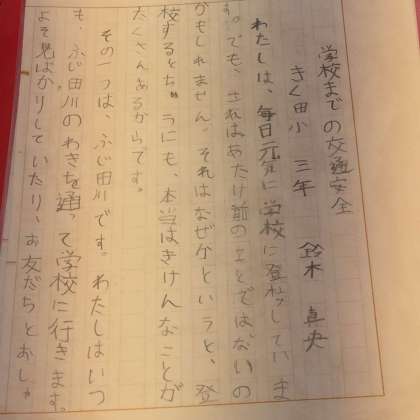 学校までの交通安全
きく田小 三年 鈴木 真央
わたしは、毎日元気に学校に登校していま
す。でも、されはあたけ前のことではないの
かもしれません。それはなぜかというと、登
校するとちゅうにも、本当はきけんなことが
たくさんあるからです。
その一つは、ふじ田川です。わたしはいつ
も、ふじ田川のわきを通って学校に行きます。
よそ見ばかりしていたり、お友だちとおしゃ